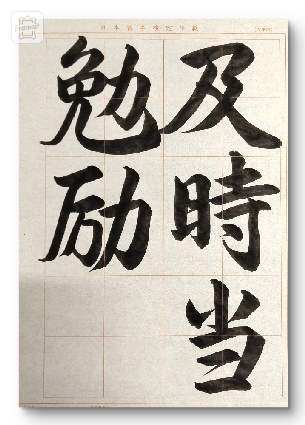 及時当
勉励